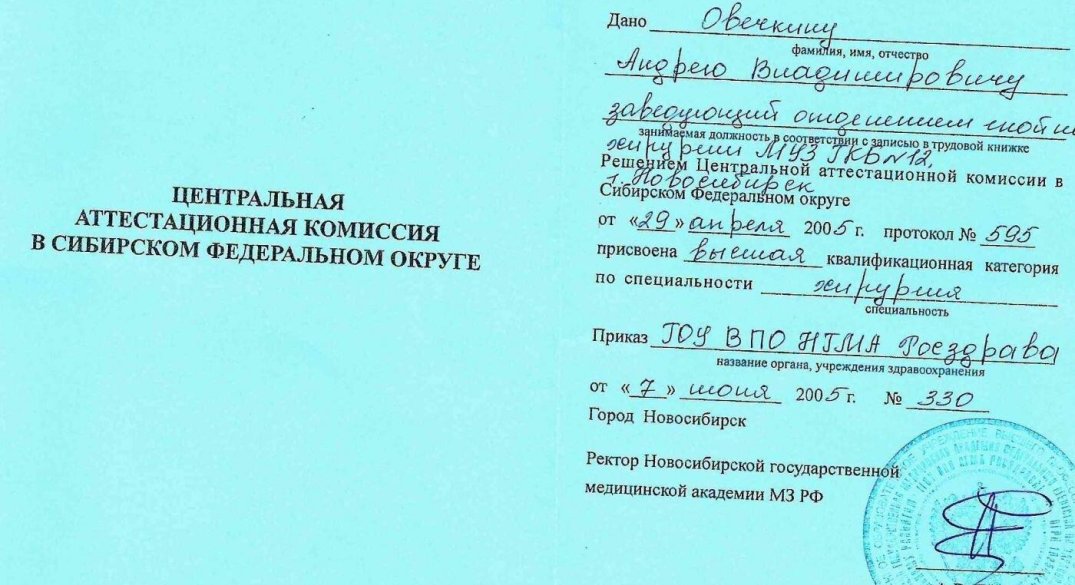 ЦЕНТРАЛЬНАЯ
АТТЕСТАЦИОННАЯ КОМИССИЯ
В СИБИРСКОМ ФЕДЕРАЛЬНОМ ОКРУГЕ
Дано Овечкину
фамилия, имя, отчество
Андрею Владимировичу
заведующий отделением гной
занимаемая должность в соответствии с записью в трудовой книжке
хирургии МУЗ ГКБ №12,
Решением Центральной аттестационной комиссии в
г. Новосибирск
Сибирском Федеральном округе
от «29» апреля 2005 г. протокол № 595
присвоена высшая квалификационная категория
по специальности хирургия
специальность
Приказ ГОУ ВПО НГМА Росздрава
название органа, учреждения здравоохранения
от «7» июня 2005 г. № 330
Город Новосибирск
Ректор Новосибирской государственной
медицинской академии МЗ РФ